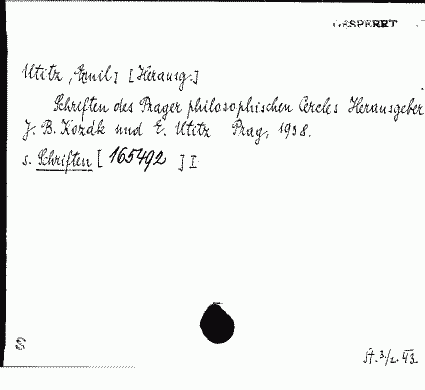 GESPERRT
Utitz, Emil] [Herausg.]
Schriften des Prager philosophischen Cercles Herausgeber
J. B. Kozák und E. Utitz Prag, 1938.
s. Schriften [ 165492 ] I
A. 3/2. 43.